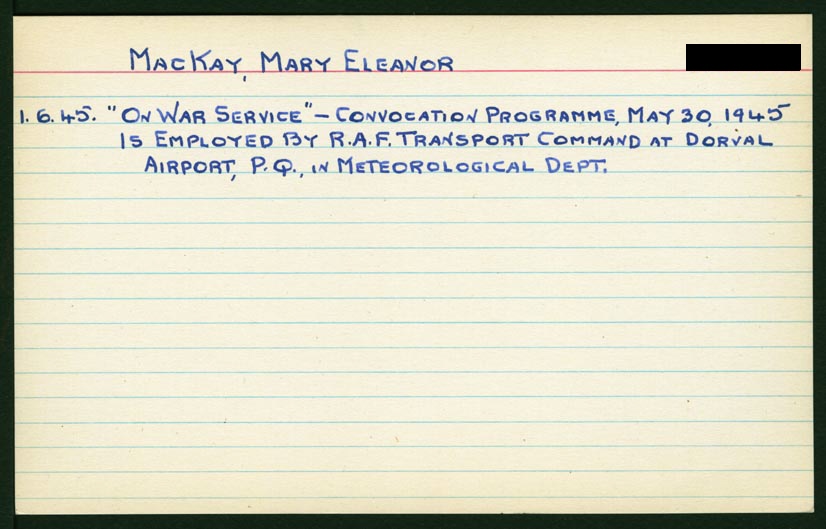 MacKay, Mary Eleanor
1.6.45. "On War Service" - Convocation Programme, May 30, 1945
Is Employed By R.A.F. Transport Command at Dorval
Airport, P.Q., in Meteorological Dept.